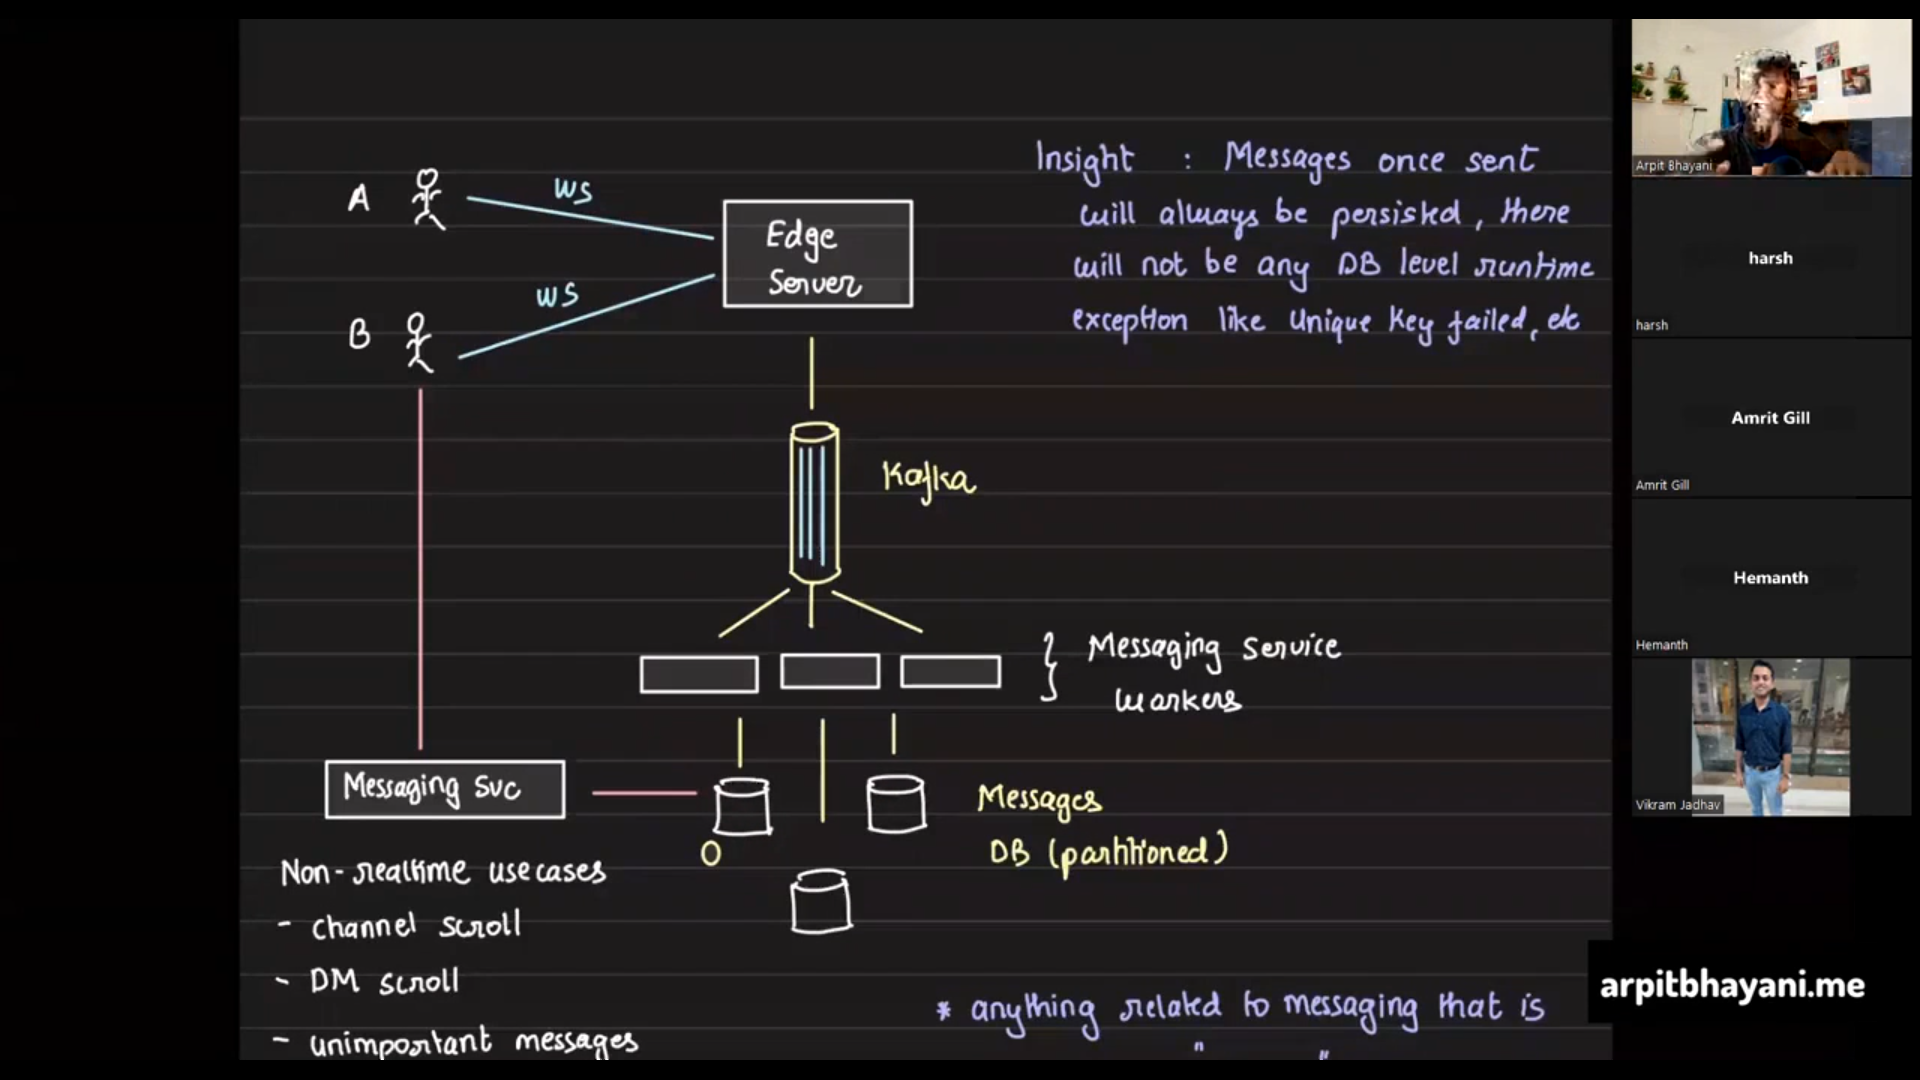 A
WS
Edge
Server
B
WS
Insight : Messages once sent
will always be persisted, there
will not be any DB level runtime
exception like Unique Key failed, etc
Kafka
Messaging Service
Workers
Messaging Svc
O
Messages
DB (partitioned)
Non-realtime usecases
- channel scroll
- DM scroll
- unimportant messages
* anything related to messaging that is
Arpit Bhayani
harsh
harsh
Amrit Gill
Amrit Gill
Hemanth
Hemanth
Vikram Jadhav
arpitbhayani.me